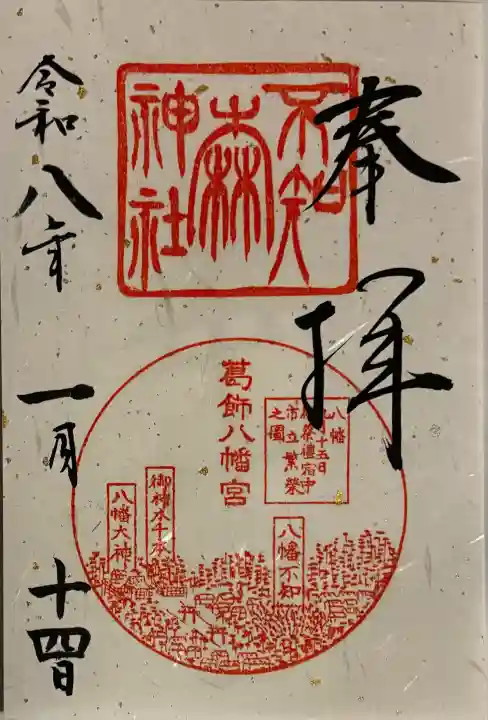 奉拝
不知
森
神社
葛飾八幡宮
八幡
八月十五日
祭禮宿中
市立繁榮
之圖
八幡不知
御神木千本
八幡大神
令和八年
一月
十四日